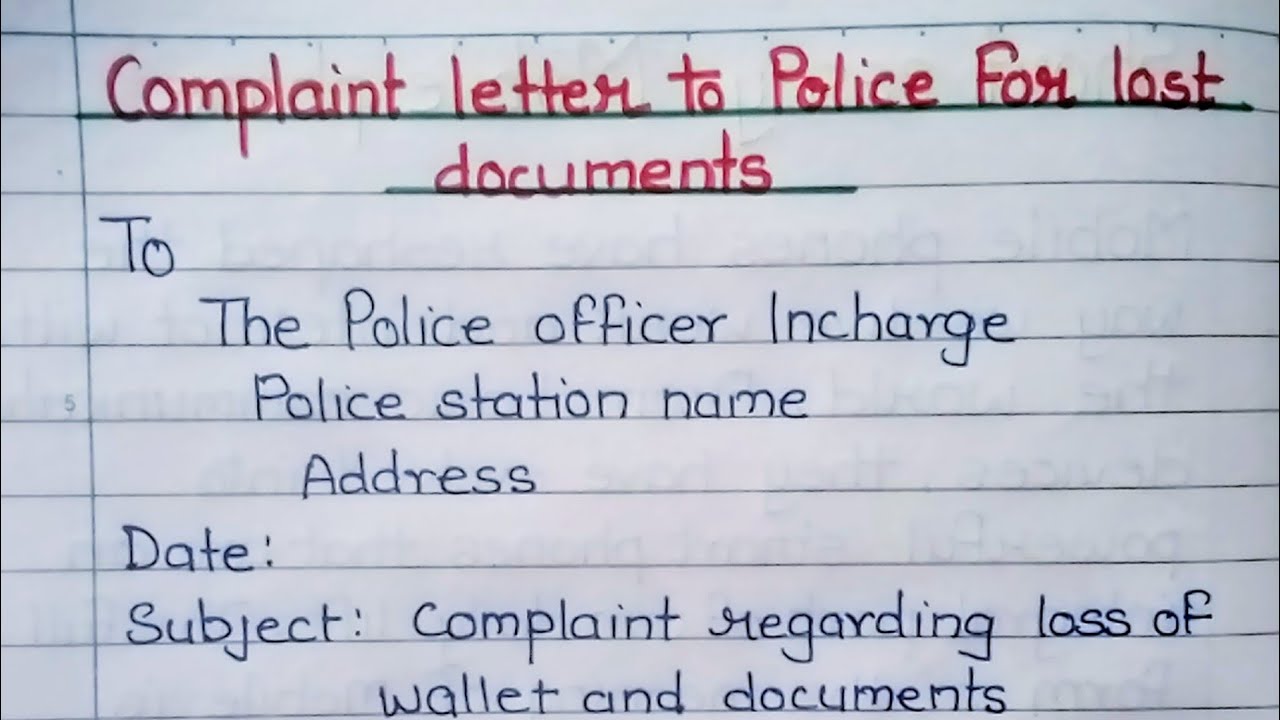 Complaint letter to Police For lost
documents
To
The Police officer Incharge
Police station name
Address
Date:
5
Subject: Complaint regarding loss of
wallet and documents